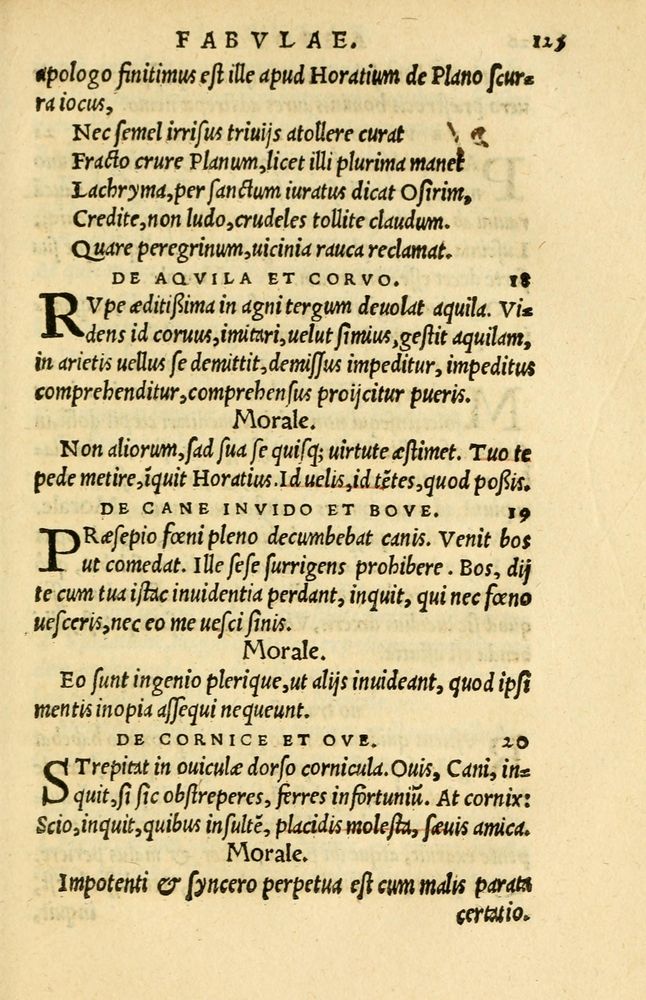 FABVLAE. 125
apologo finitimus est ille apud Horatium de Plano scur-
ra iocus,
Nec semel irrisus triuijs atollere curat
Fracto crure Planum, licet illi plurima manet
Lachryma, per sanctum iuratus dicat Osirim,
Credite, non ludo, crudeles tollite claudum.
Quare peregrinum, uicinia rauca reclamat.
DE AQVILA ET CORVO. 18
RVpe æditißima in agni tergum deuolat aquila. Vi-
dens id coruus, imitari, uelut simius, gestit aquilam,
in arietis uellus se demittit, demissus impeditur, impeditus
comprehenditur, comprehensus proijcitur pueris.
Morale.
Non aliorum, sad sua se quisq; uirtute æstimet. Tuo te
pede metire, īquit Horatius. Id uelis, id tētes, quod poßis.
DE CANE INVIDO ET BOVE. 19
PRæsepio fœni pleno decumbebat canis. Venit bos
ut comedat. Ille sese surrigens prohibere. Bos, dij
te cum tua istac inuidentia perdant, inquit, qui nec fœno
uesceris, nec eo me uesci sinis.
Morale.
Eo sunt ingenio plerique, ut alijs inuideant, quod ipsi
mentis inopia assequi nequeunt.
DE CORNICE ET OVE. 20
STrepitat in ouiculæ dorso cornicula. Ouis, Cani, in-
quit, si sic obstreperes, ferres infortuniū. At cornix:
Scio, inquit, quibus insultē, placidis molesta, sæuis amica.
Morale.
Impotenti & syncero perpetua est cum malis parata
certatio.